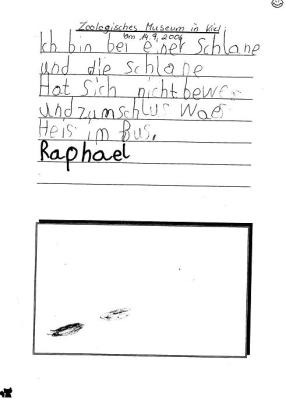 Zoologisches Museum in Kiel
am 14.9.2004
Ich bin bei einer Schlane
und die Schlane
Hat Sich nicht bewe
und zumschlus Waes
Heis im Bus.
Raphael